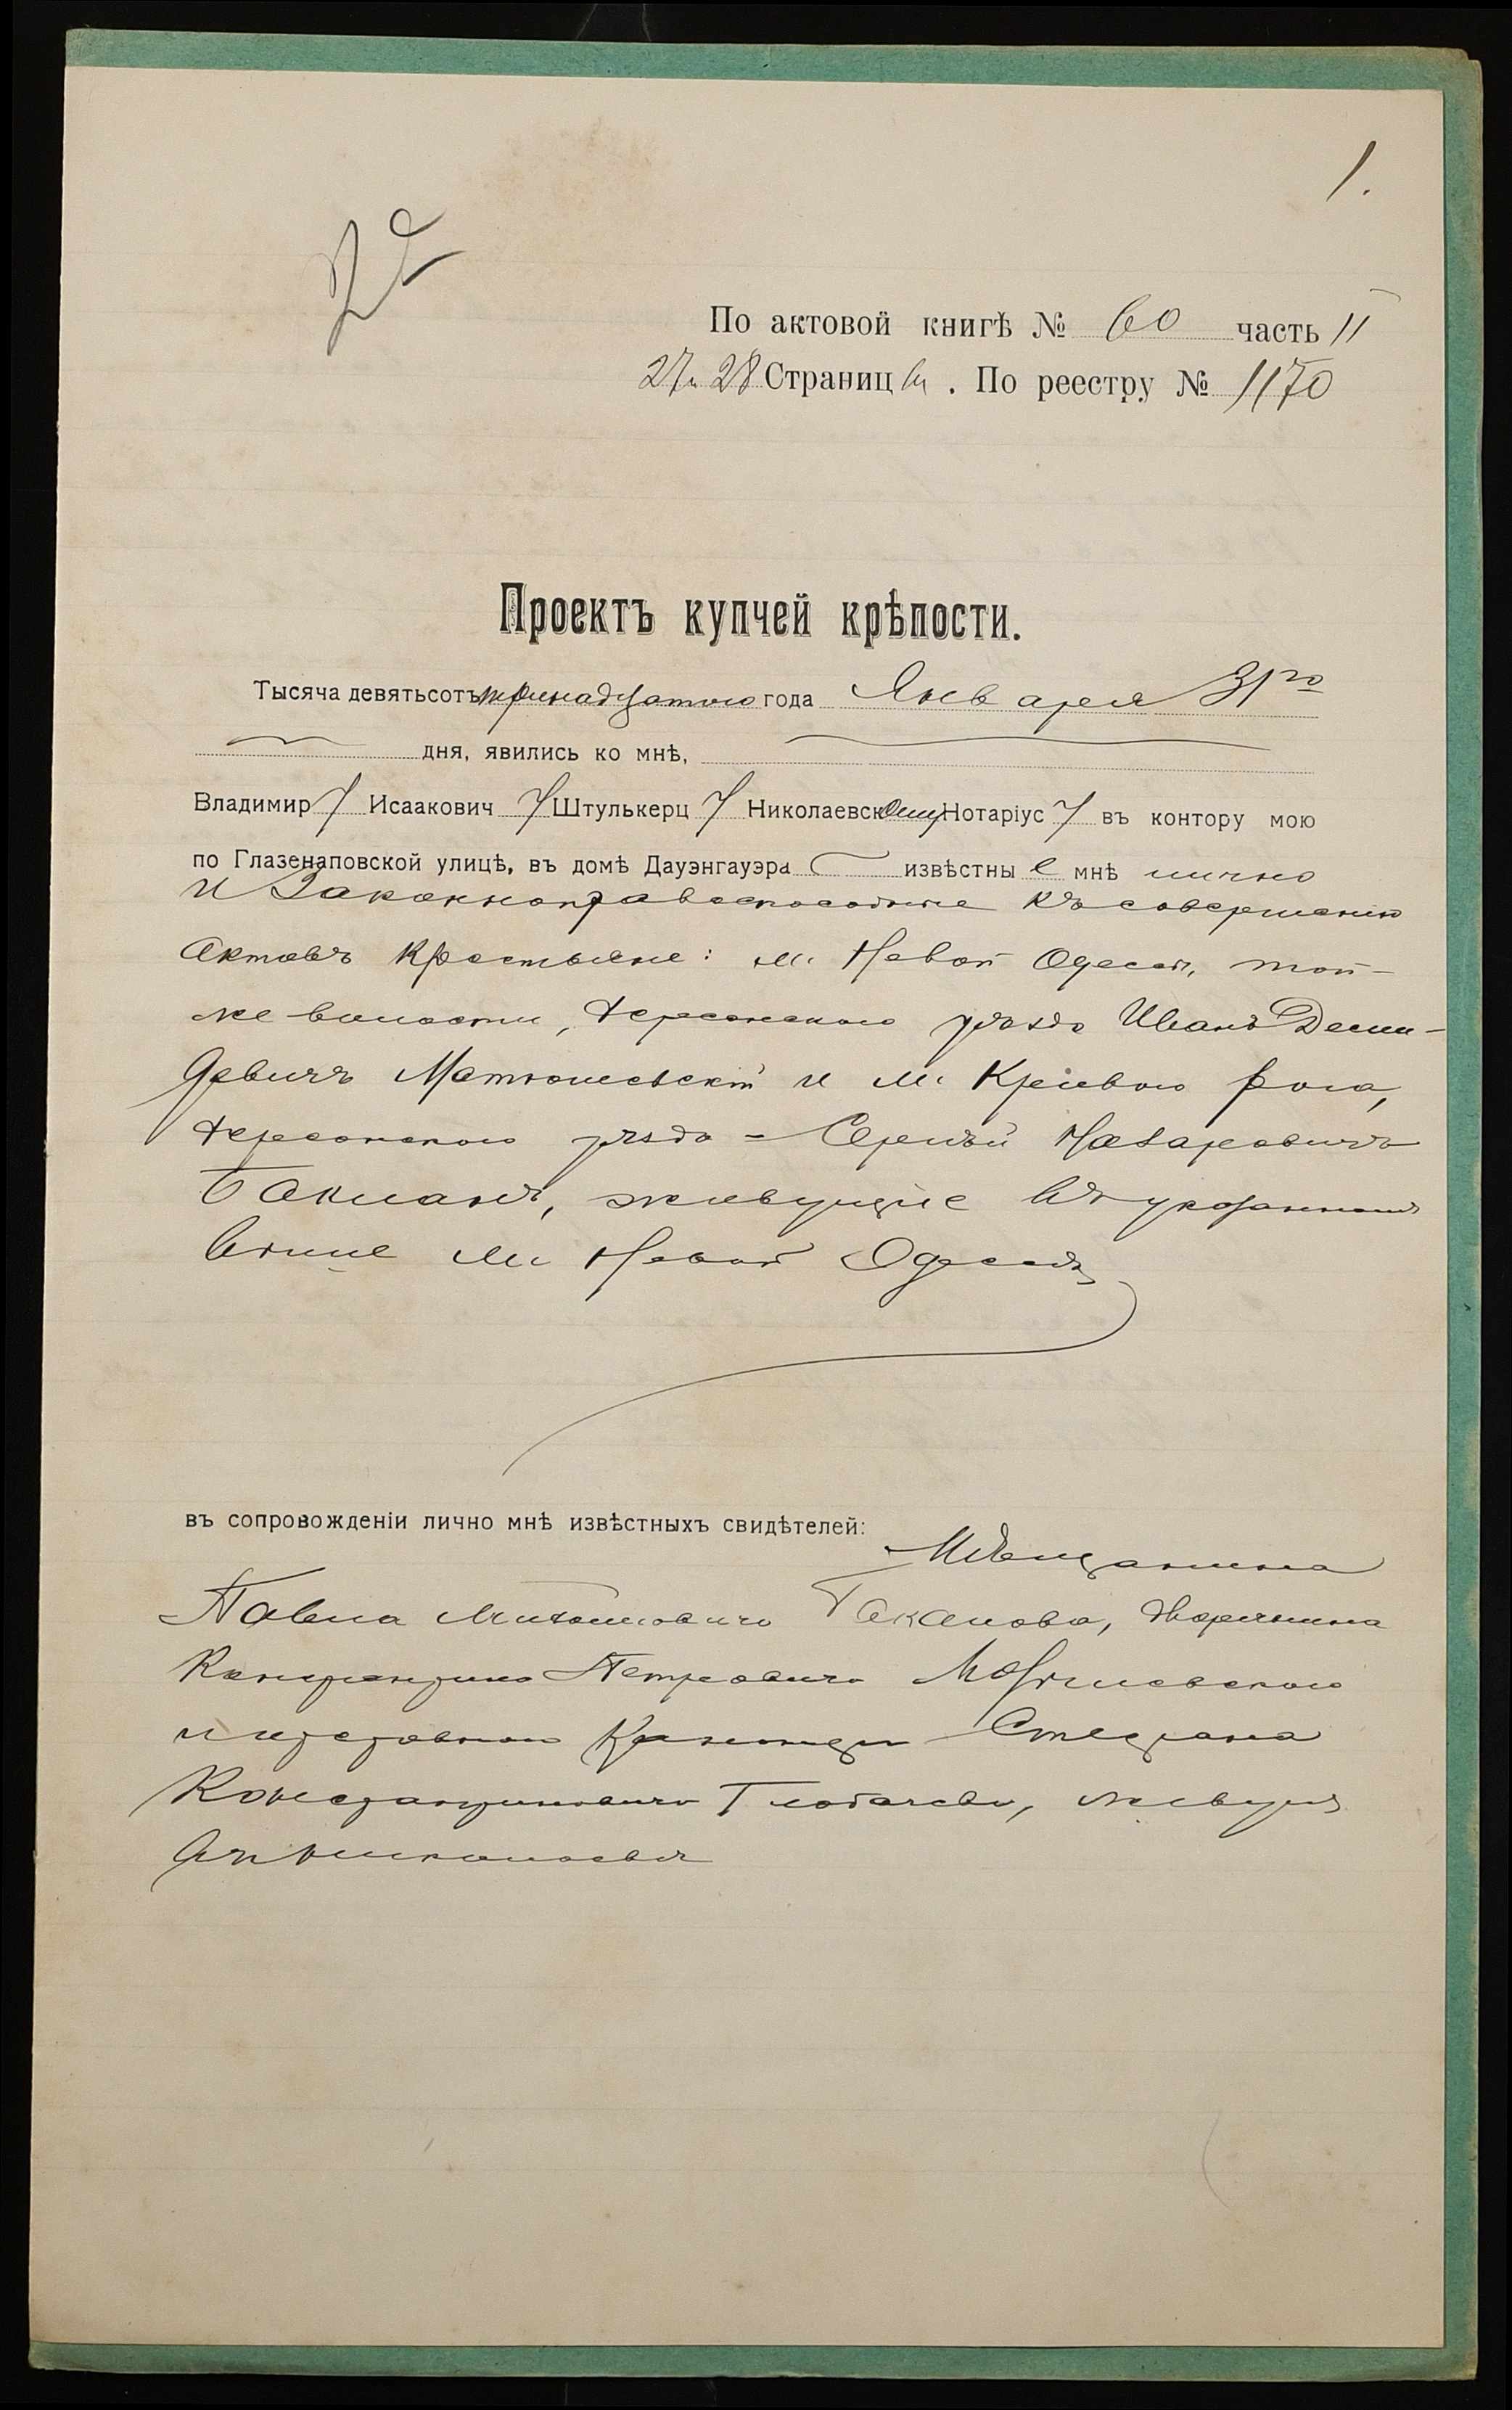 1.
По актовой книгѣ № 60 часть II
27 и 28 Страницы. По реестру № 1170
Проектъ купчей крѣпости.
Тысяча девятьсотъ тринадцатаго года Января 31го
дня, явились ко мнѣ,
Владимиру Исааковичу Штулькерцу Николаевскому Нотаріусу въ контору мою
по Глазенаповской улицѣ, въ домѣ Дауэнгауэра извѣстные мнѣ лично
и законноправоспособные къ совершенію
актовъ крестьяне: м. Новой Одессы, той-
же волости, Херсонскаго уѣзда Иванъ Деми-
довичъ Матюшевскій и м. Кривого Рога,
Херсонскаго уѣзда - Сергѣй Назаровичъ
Бакланъ, живущіе въ указанномъ
выше м. Новой Одессѣ
въ сопровожденіи лично мнѣ извѣстныхъ свидѣтелей:
Мѣщанина
Павла Михайловича Дворянина
Константина Петровича Могилевскаго
и Степана
Константиновича Глобачева, живущ.
въ Николаевѣ